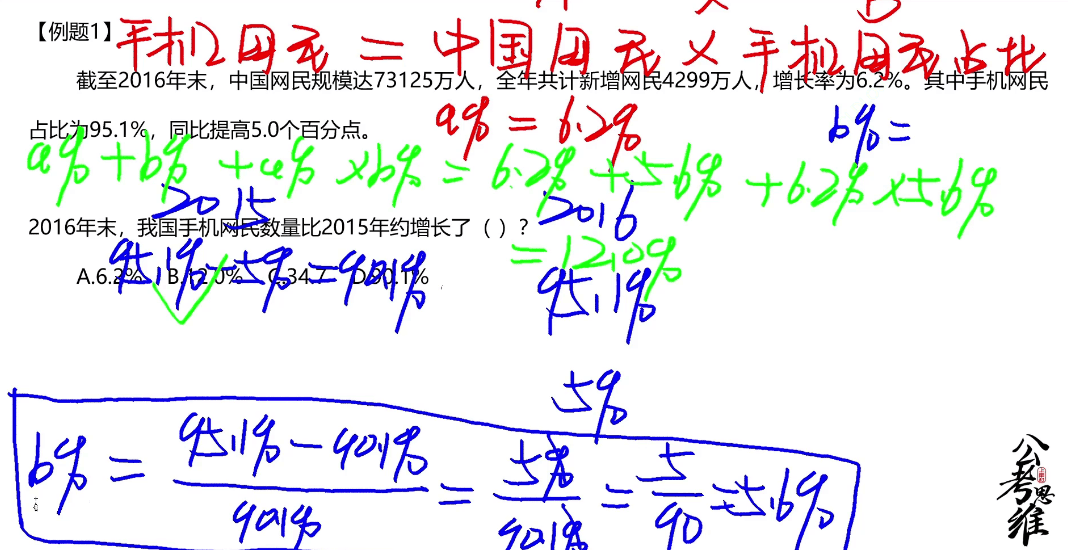 A × B
【例题1】手机网民 = 中国网民 × 手机网民占比
截至2016年末，中国网民规模达73125万人，全年共计新增网民4299万人，增长率为6.2%。其中手机网民
占比为95.1%，同比提高5.0个百分点。
a% = 6.2% b% =
a% + b% + a% × b% = 6.2% + 5.6% + 6.2% × 5.6%
2015 2016
2016年末，我国手机网民数量比2015年约增长了（ ）？
= 12.0%
A.6.2% B.12.0% C.34.7 D.90.1%
95.1% - 5% = 90.1% 95.1%
5%
b% = 95.1% - 90.1% / 90.1% = 5% / 90.1% = 5 / 90 = 5.6%
公考思维